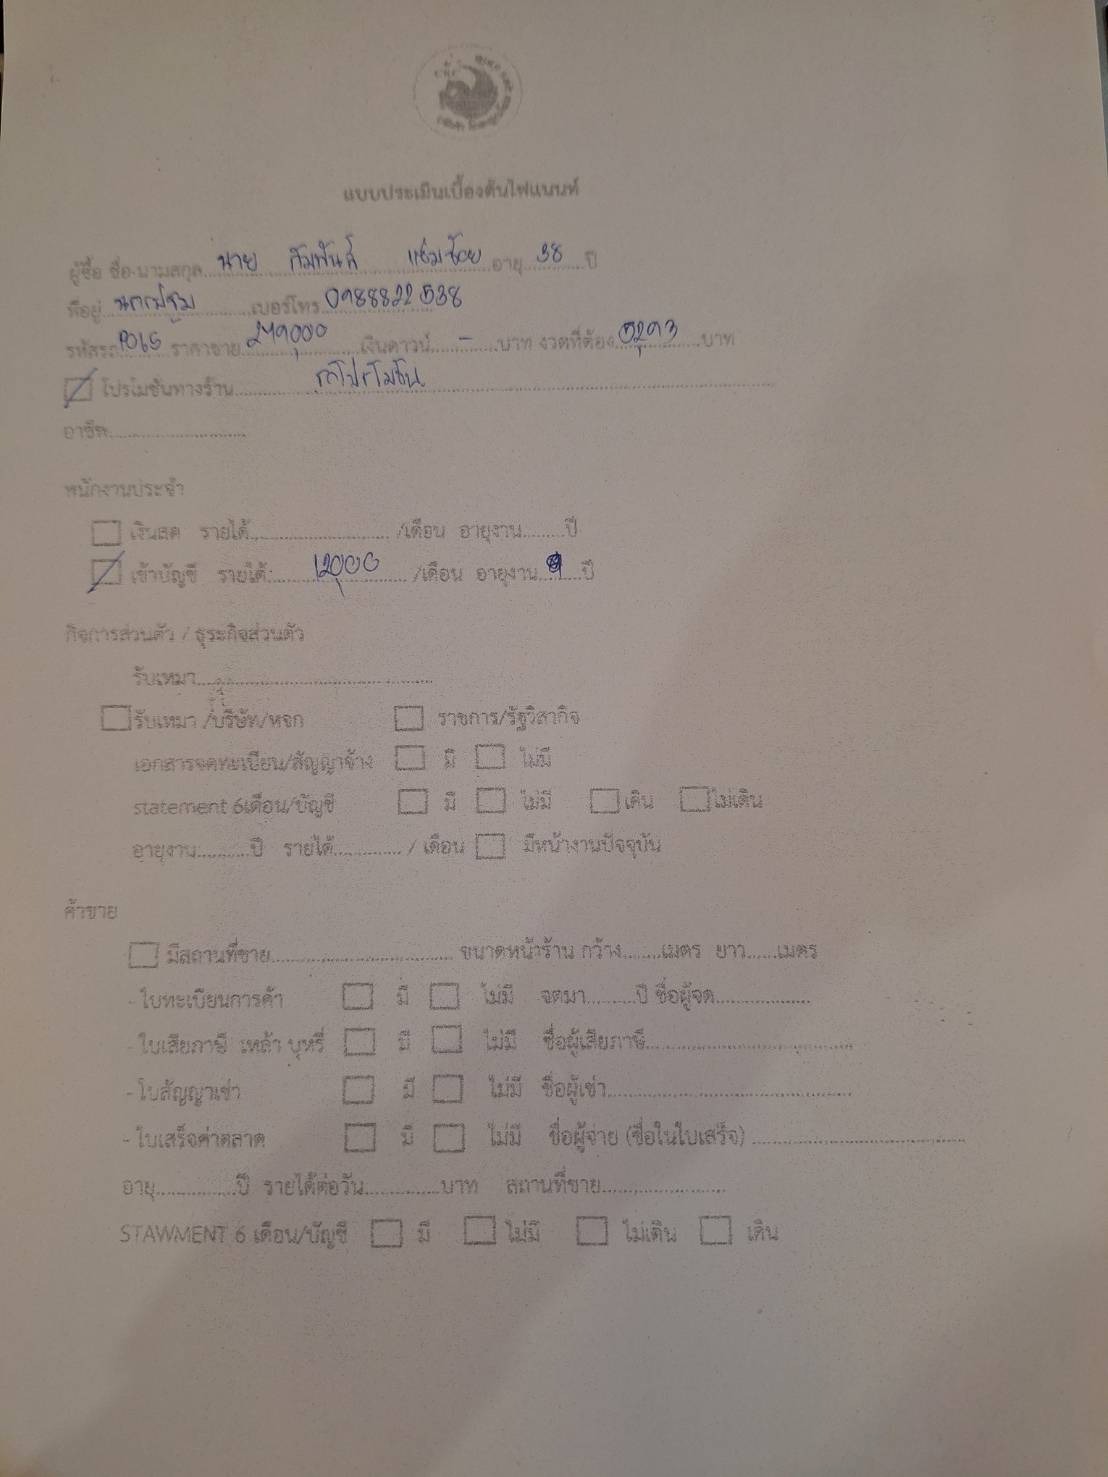 แบบประเมินเบื้องต้นไฟแนนท์
ผู้ซื้อ ชื่อ-นามสกุล นาย สัมพันธ์ แย้มช้อย อายุ 38 ปี
ที่อยู่ เบอร์โทร 0988822538
รหัสรถ P065 ราคาขาย 279,000 เงินดาวน์ - บาท งวดที่ต้อง 5,293 บาท
โปรโมชั่นทางร้าน รถโปรโมชั่น
อาชีพ
พนักงานประจำ
เงินสด รายได้ /เดือน อายุงาน ปี
เข้าบัญชี รายได้ 12,000 /เดือน อายุงาน ปี
กิจการส่วนตัว / ธุระกิจส่วนตัว
รับเหมา
รับเหมา /บริษัท/หจก ราชการ/รัฐวิสากิจ
เอกสารจดทะเบียน/สัญญาจ้าง มี ไม่มี
statement 6เดือน/บัญชี มี ไม่มี เดิน ไม่เดิน
อายุงาน ปี รายได้ / เดือน มีหน้างานปัจจุบัน
ค้าขาย
มีสถานที่ขาย ขนาดหน้าร้าน กว้าง เมตร ยาว เมตร
- ใบทะเบียนการค้า มี ไม่มี จดมา ปี ชื่อผู้จด
- ใบเสียภาษี เหล้า บุหรี่ มี ไม่มี ชื่อผู้เสียภาษี
- ใบสัญญาเช่า มี ไม่มี ชื่อผู้เช่า
- ใบเสร็จค่าตลาด มี ไม่มี ชื่อผู้จ่าย (ชื่อในใบเสร็จ)
อายุ ปี รายได้ต่อวัน บาท สถานที่ขาย
STAWMENT 6 เดือน/บัญชี มี ไม่มี ไม่เดิน เดิน